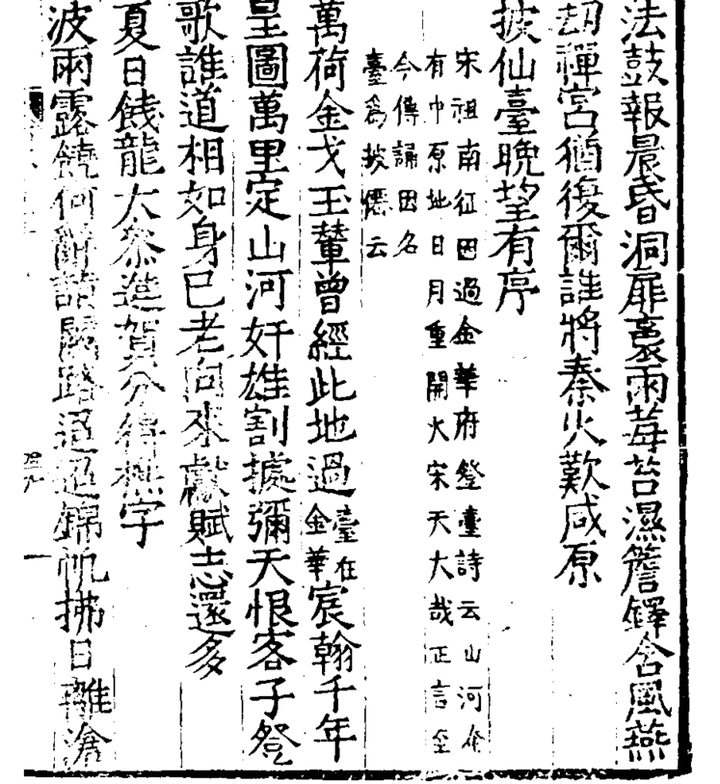 法鼓報晨昏洞扉裛雨莓苔濕簷鐸含風燕
劫禪宮猶復爾誰將秦火歎咸原
披仙臺晚望有序
宋祖南征因過金華府登臺詩云山河
有中原地日月重開大宋天大哉正言至
今傳誦因名
臺爲披僊云
萬荷金戈玉輦曾經此地過臺在金華宸翰千年
皇圖萬里定山河奸雄割據彌天恨客子登
歌誰道相如身已老向來獻賦志還多
夏日餞龍大參進賀分得無字
波雨露饒何辭關路迢迢錦帆拂日離滄